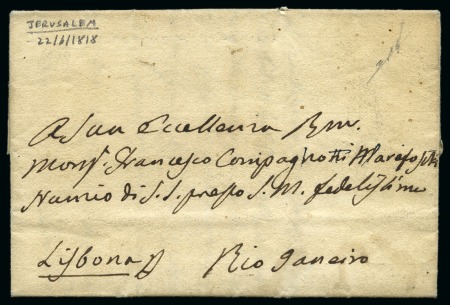 JERUSALEM
22/6/1818
A Sua Eccellenza Rm.
Monsr. Francesco Compagnotti Marefoschi
Nunzio di S. S. presso S. M. fedelissima
Lisbona p Rio Janeiro